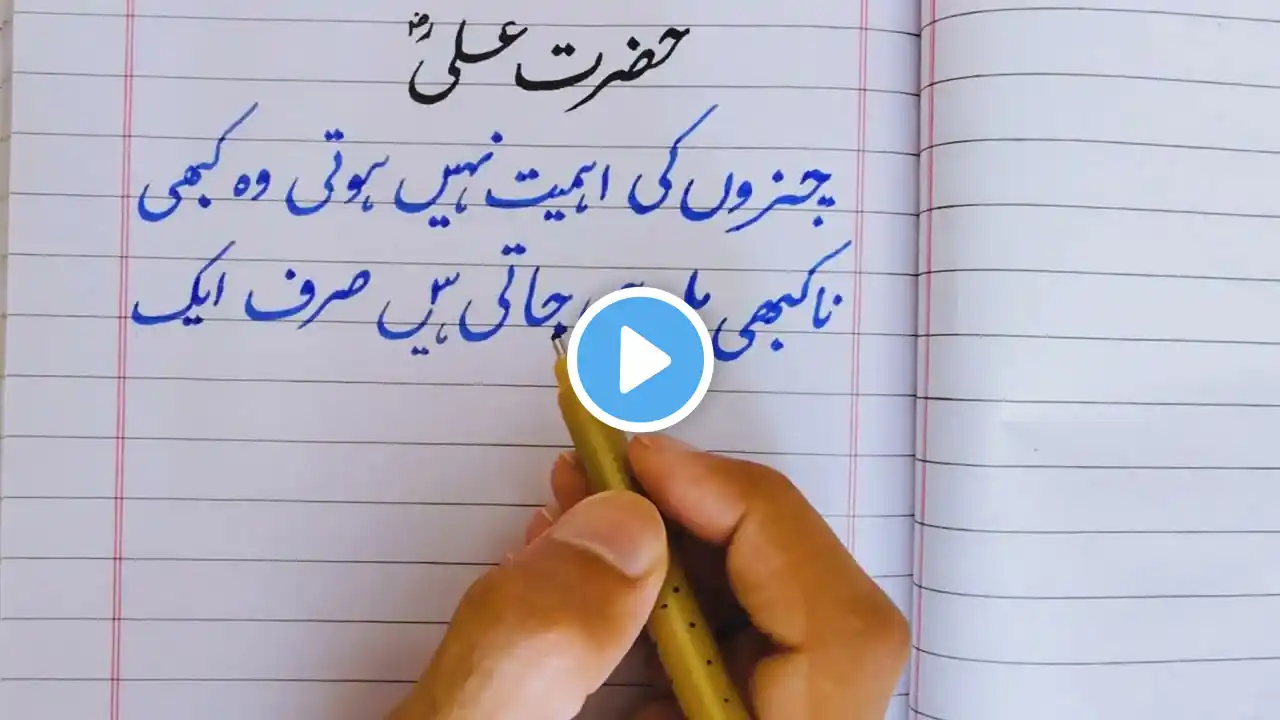 حضرت علیؓ
چیزوں کی اہمیت نہیں ہوتی وہ کبھی
نا کبھی مل جاتی ہیں صرف ایک